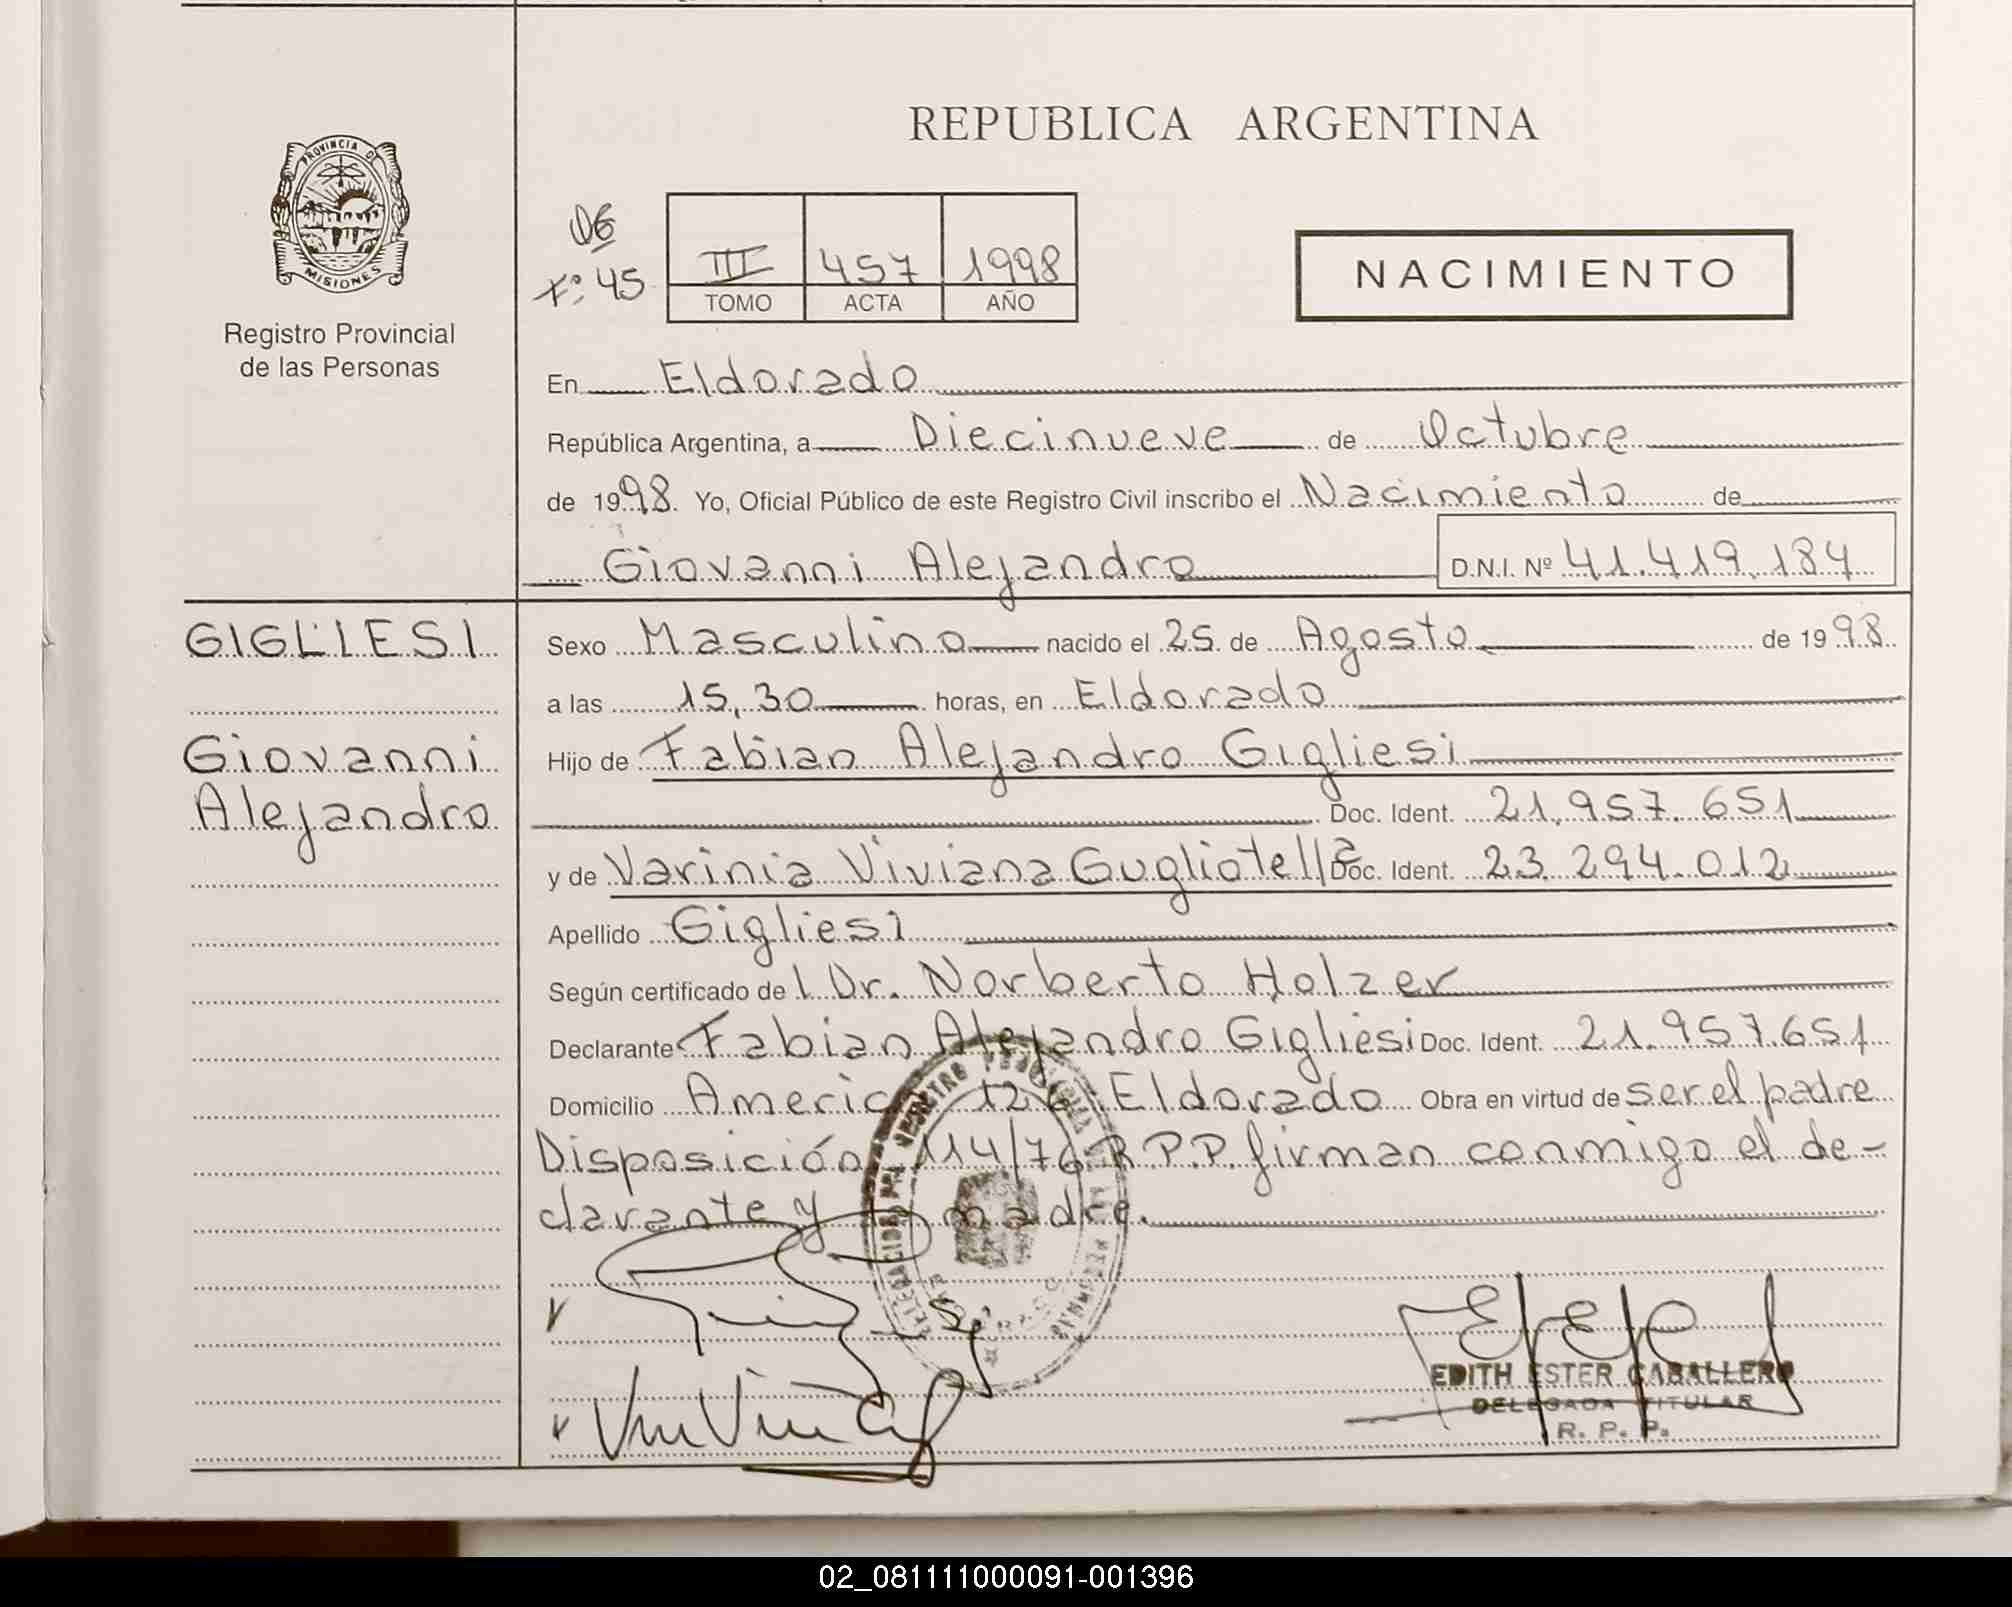 REPUBLICA ARGENTINA
PROVINCIA D
MISIONES
Registro Provincial
de las Personas
06
Fº: 45
III 457 1998
TOMO ACTA AÑO
NACIMIENTO
En Eldorado
República Argentina, a Diecinueve de Octubre
de 1998. Yo, Oficial Público de este Registro Civil inscribo el Nacimiento de
Giovanni Alejandro D.N.I. Nº 41.419.184
GIGLIESI
Giovanni
Alejandro
Sexo Masculino nacido el 25 de Agosto de 1998
a las 15,30 horas, en Eldorado
Hijo de Fabian Alejandro Gigliesi
Doc. Ident. 21.957.651
y de Varinia Viviana Gugliotella Doc. Ident. 23.294.012
Apellido Gigliesi
Según certificado de l Dr. Norberto Holzer
Declarante Fabian Alejandro Gigliesi Doc. Ident. 21.957.651
Domicilio America Eldorado Obra en virtud de ser el padre
Disposición 114/76 R.P.P. firman conmigo el de-
clarante y madre.
EDITH ESTER CABALLERO
DELEGADA TITULAR
R. P. P.
02_081111000091-001396